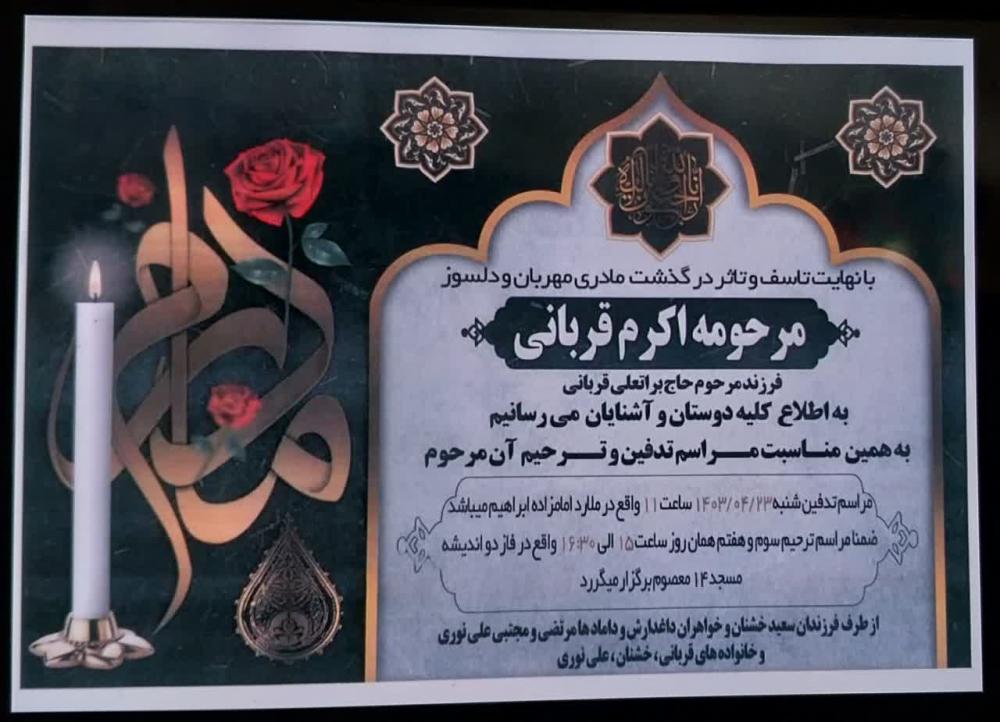 انا لله و انا الیه راجعون
مادرم
با نهایت تاسف و تاثر در گذشت مادری مهربان و دلسوز
مرحومه اکرم قربانی
فرزند مرحوم حاج براتعلی قربانی
به اطلاع کلیه دوستان و آشنایان می رسانیم
به همین مناسبت مراسم تدفین و ترحیم آن مرحوم
مراسم تدفین شنبه ۱۴۰۳/۰۴/۲۳ ساعت ۱۱ واقع در ملارد امامزاده ابراهیم میباشد
ضمنا مراسم ترحیم سوم و هفتم همان روز ساعت ۱۵ الی ۱۶:۳۰ واقع در فاز دو اندیشه
مسجد ۱۴ معصوم برگزار میگررد
از طرف فرزندان سعید خشنان و خواهران داغدارش و دامادها مرتضی و مجتبی علی نوری
و خانواده های قربانی، خشنان، علی نوری